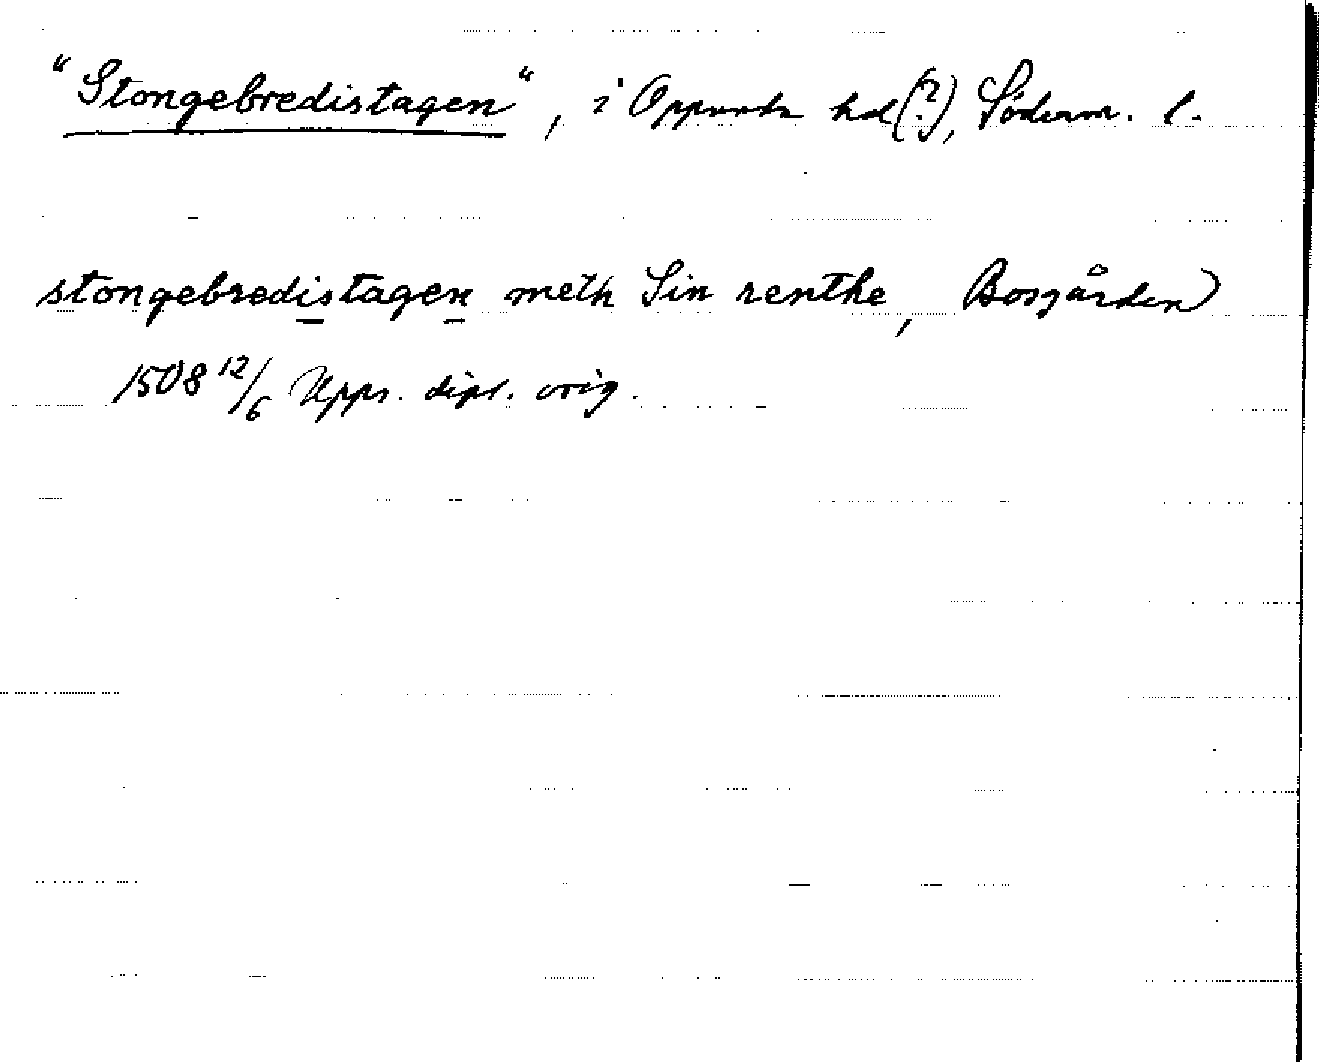 "Stongebredistagen", i Oppunda hd(?), Söderm. l.
stongebredistagen meth Sin renthe, Bosgården
1508 12/6 Upps. dipl. orig.